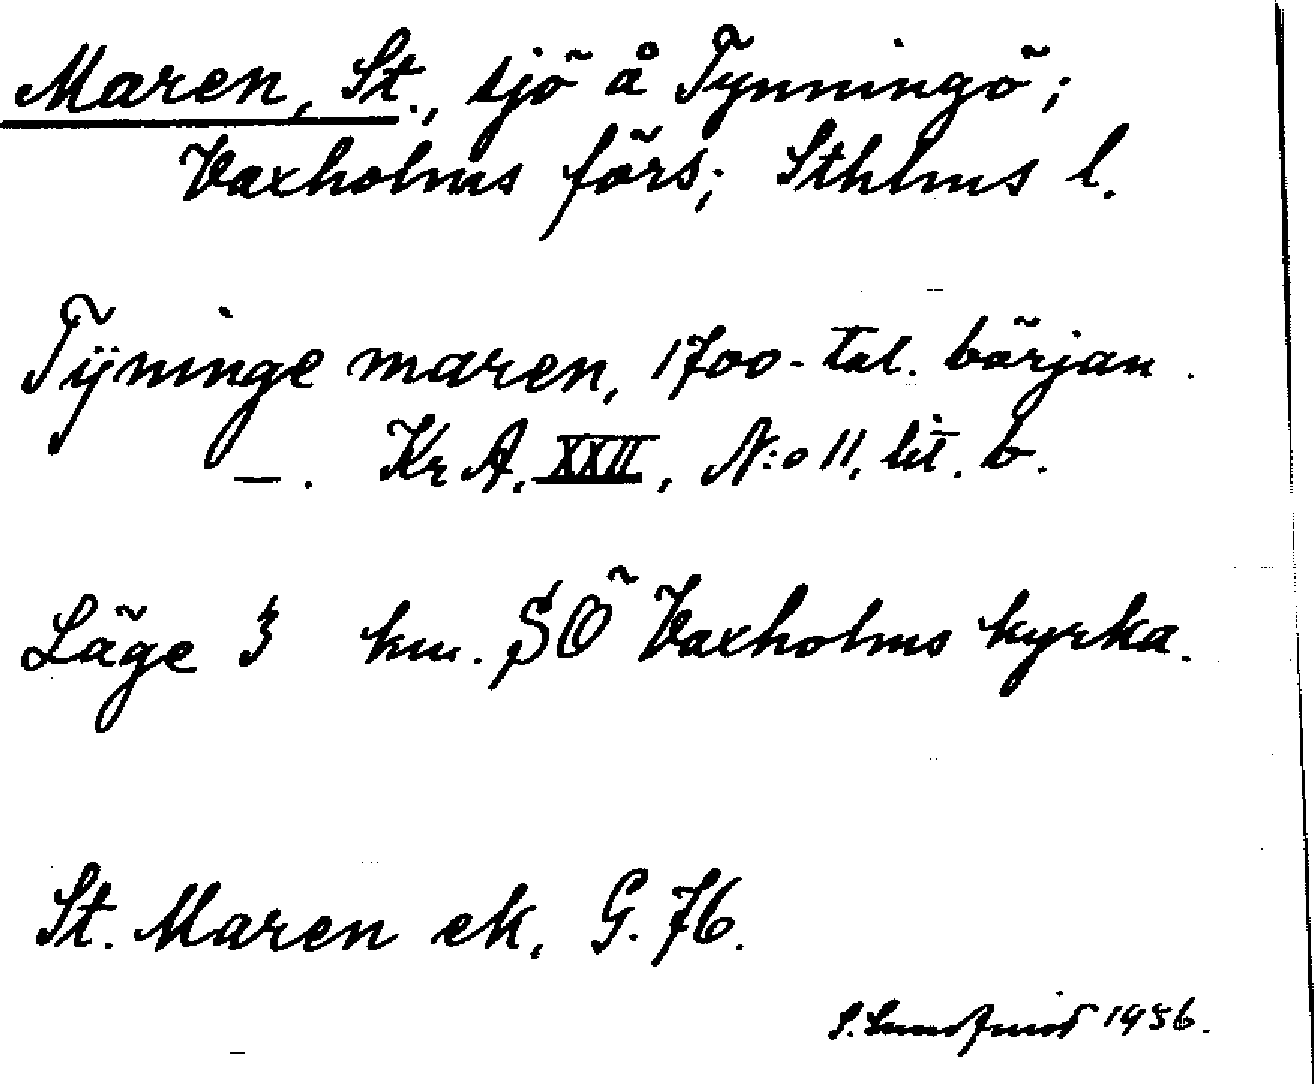 Maren, St., sjö å Tynningö;
Vaxholms förs; Sthlms l.
Tÿninge maren, 1700-tal. början.
—. Kr A, XXII, N:o 11, lit. b.
Läge 3 km. SÖ Vaxholms kyrka.
St. Maren ek. G. 76.
S. Lundqvist 1936.